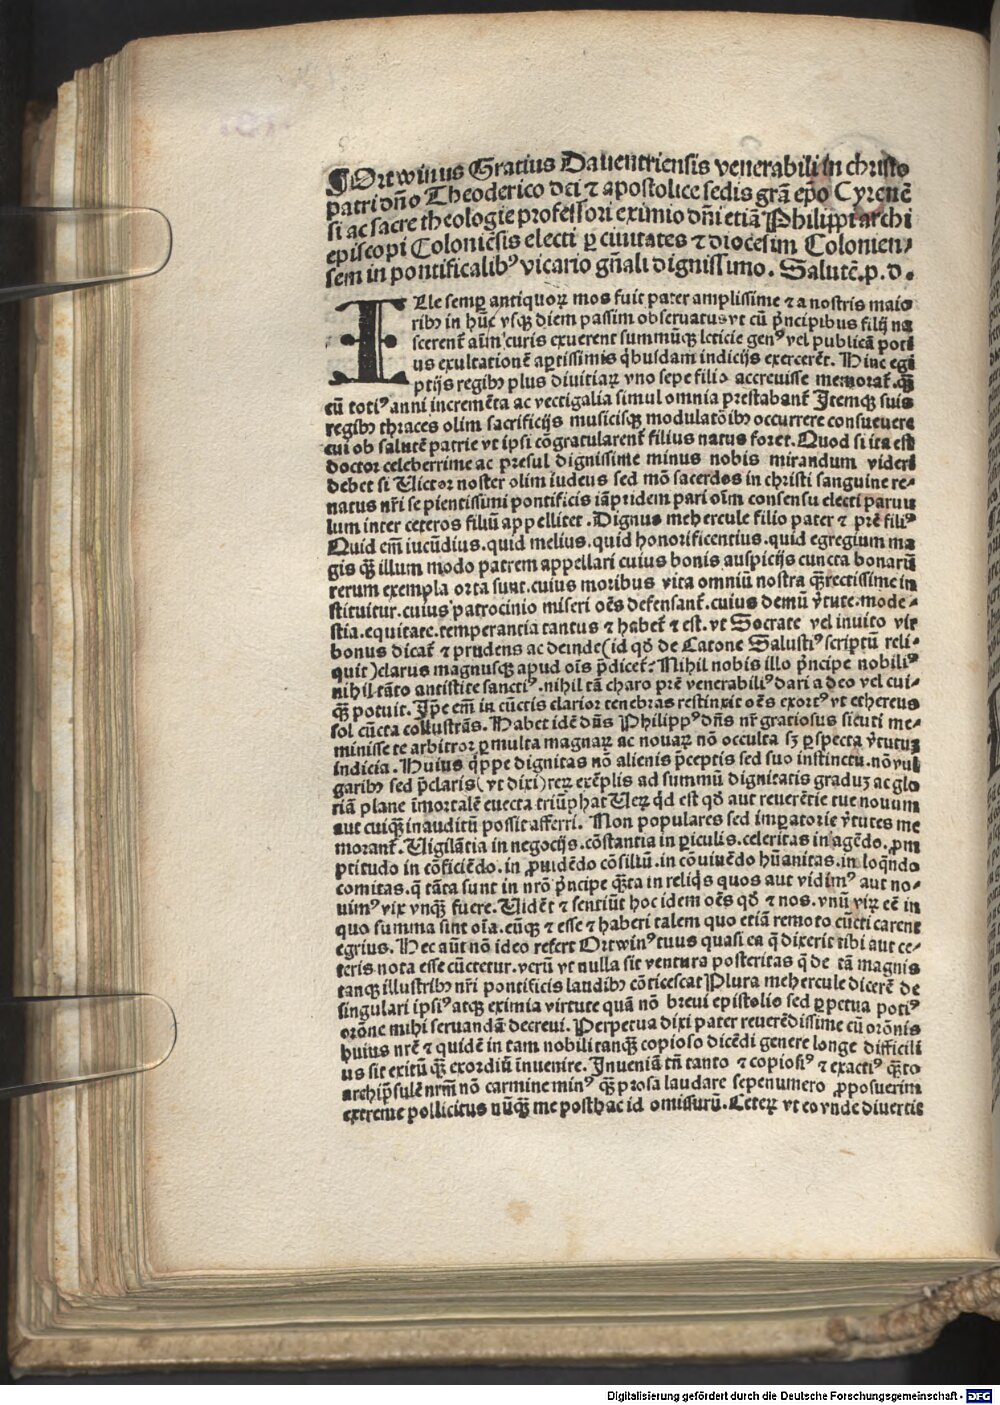 ¶Ortwinus Gratius Dauentriensis venerabili in christo
patri dño Theoderico dei ⁊ apostolice sedis grã ep̃o Cyrenẽ
si ac sacre theologie professori eximio dñi etiã Philippi archi
episcopi Coloniẽsis electi ꝑ ciuitates ⁊ diocesim Colonien⸗
sem in pontificalibꝰ vicario gñali dignissimo. Salutẽ.p.d.
ILle semꝑ antiquoꝝ mos fuit pater amplissime ⁊ a nostris maio
ribꝫ in hũc vsqꝫ diem passim obseruatus vt cũ p̃ncipibus filij na
scerent᷑ aĩm curis exuerent summũqꝫ leticie genꝰ vel publicã poti
us exultationẽ aptissimis q̃busdam indicijs exercerẽt. Hinc egi
ptijs regibꝫ plus diuitiaꝝ vno sepe filio accreuisse memorat᷑. qꝫ̃
cũ totiꝰ anni incremẽta ac vectigalia simul omnia prestabant᷑ Itemqꝫ suis
regibꝫ thraces olim sacrificijs musicisqꝫ modulatõibꝫ occurrere consueuere
cui ob salutẽ patrie vt ipsi cõgratularent᷑ filius natus foret. Quod si ita est
doctor celeberrime ac presul dignissime minus nobis mirandum videri
debet si Victor noster olim iudeus sed mõ sacerdos in christi sanguine re⸗
natus nr̃i sepientissimi pontificis iãpridem pari oĩm consensu electi paruu
lum inter ceteros filiũ appellitet. Dignus mehercule filio pater ⁊ pr̃e filiꝰ
Quid em̃ iucũdius. quid melius. quid honorificentius. quid egregium ma
gis qꝫ̃ illum modo patrem appellari cuius bonis auspicijs cuncta bonarũ
rerum exempla orta sunt. cuius moribus vita omniũ nostra qꝫ̃rectissime in
stituitur. cuius patrocinio miseri oẽs defensant᷑. cuius demũ ṽtute. mode⸗
stia. equitate. temperantia tantus ⁊ habet᷑ ⁊ est. vt Socrate vel inuito vir
bonus dicat᷑ ⁊ prudens ac deinde (id qđ de Catone Salustiꝰ scriptũ reli⸗
quit) clarus magnusqꝫ apud oĩs p̃dicet᷑: Nihil nobis illo p̃ncipe nobiliꝰ
nihil tãto antistite sanctiꝰ. nihil tã charo pr̃e venerabiliꝰ dari adeo vel cui⸗
qꝫ̃ potuit. Ip̃e em̃ in cũctis clarior tenebras restinxit oẽs exortꝰ vt ethereus
sol cũcta collustrãs. Habet idẽ dñs Philippꝰ dñs nr̃ gratiosus sicuti me⸗
minisse te arbitror ꝑmulta magnaꝝ ac nouaꝝ nõ occulta sꝫ ꝑspecta ṽtutuꝫ
indicia. Huius q̃ppe dignitas nõ alienis p̃ceptis sed suo instinctu. nõ vul
garibꝫ sed p̃claris (vt dixi) reꝝ exẽplis ad summũ dignitatis graduꝫ ac glo
riã plane ĩmortalẽ euecta triũphat Veꝝ q̃d est qđ aut reuerẽtie tue nouum
aut cuiqꝫ̃ inauditũ possit afferri. Non populares sed imꝑatorie ṽtutes me
morant᷑. Vigilãtia in negocijs. cõstantia in ꝑiculis. celeritas in agẽdo. ꝓm
ptitudo in cõficiẽdo. in ꝓuidẽdo cõsiliũ. in cõuiuẽdo hũanitas. in loq̃ndo
comitas. q̃ tãta sunt in nr̃o p̃ncipe qꝫ̃ta in reliq̃s quos aut vidimꝰ aut no⸗
uimꝰ vix vnqꝫ̃ fuere. Vidẽt ⁊ sentiũt hoc idem oẽs qđ ⁊ nos. vnũ viꝝ eẽ in
quo summa sint oĩa. eũqꝫ ⁊ esse ⁊ haberi talem quo etiã remoto cũcti carent
egrius. Hec aũt nõ ideo refert Ortwinꝰ tuus quasi ea q̃ dixerit tibi aut ce⸗
teris nota esse cũctetur. verũ vt nulla sit ventura posteritas q̃ de tã magnis
tanqꝫ illustribꝫ nr̃i pontificis laudibꝫ cõticescat Plura mehercule dicerẽ de
singulari ipsiꝰ atqꝫ eximia virtute quã nõ breui epistolio sed ꝑpetua potiꝰ
orõne mihi seruandã decreui. Perpetua dixi pater reuerẽdissime cũ orõnis
huius nr̃e ⁊ quidẽ in tam nobili tanqꝫ̃ copioso dicẽdi genere longe difficili
us sit exitũ qꝫ̃ exordiũ inuenire. Inueniã tñ tanto ⁊ copiosiꝰ ⁊ exactiꝰ qꝫ̃to
archip̃sulẽ nr̃m nõ carmine minꝰ qꝫ̃ prosa laudare sepenumero ꝓposuerim
extreme pollicitus nũqꝫ̃ me posthac id omissurũ. Ceteꝝ vt eo vnde diuertis
Digitalisierung gefördert durch die Deutsche Forschungsgemeinschaft - DFG